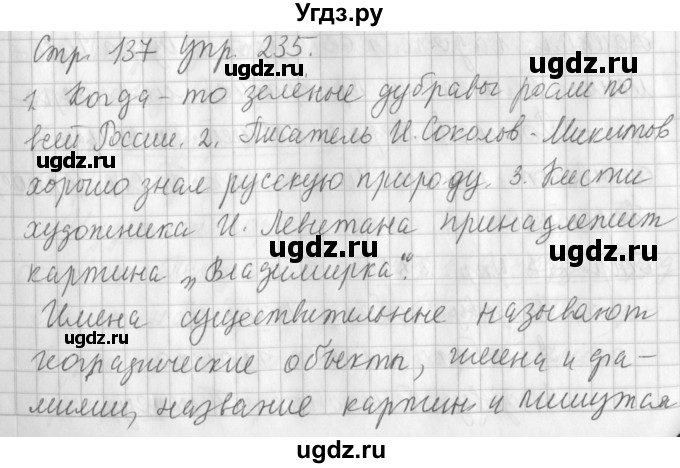 Угдз.ру
Стр. 137 упр 235.
1. Когда-то зелёные дубравы росли по
всей России. 2. Писатель И. Соколов-Микитов
хорошо знал русскую природу. 3. Кисти
художника И. Левитана принадлежит
картина „Владимирка".
Имена существительные называют
географические объекты, имена и фа-
милии, название картин и пишутся
ugdz.ru
ugdz.ru
ugdz.ru
ugdz.ru
ugdz.ru
ugdz.ru
ugdz.ru
ugdz.ru
Угдз.ру